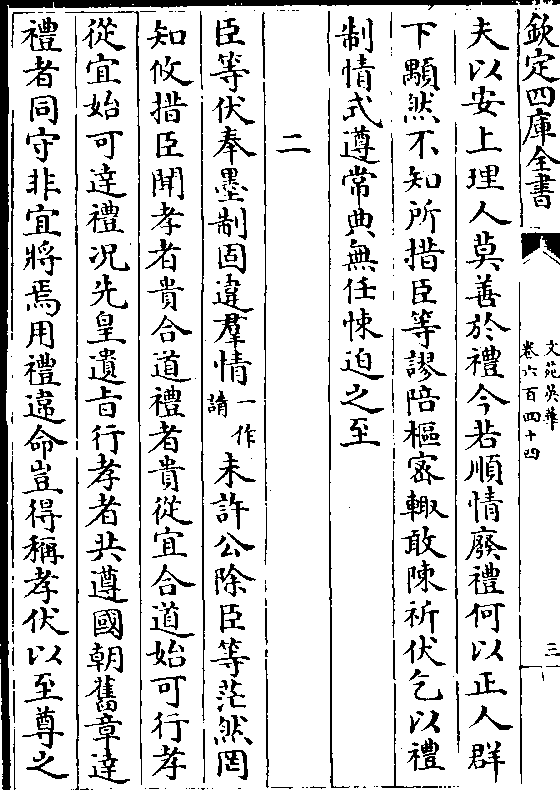 欽定四庫全書
文苑英華
卷六百四十四
三
夫以安上理人莫善於禮今若順情廢禮何以正人群
下顒然不知所措臣等謬陪樞密輙敢陳祈伏乞以禮
制情式遵常典無任悚迫之至
二
臣等伏奉墨制固違羣情一作請未許公除臣等茫然罔
知攸措臣聞孝者貴合道禮者貴從宜合道始可行孝
從宜始可達禮况先皇遺旨行孝者共遵國朝舊章達
禮者同守非宜將焉用禮違命豈得稱孝伏以至尊之